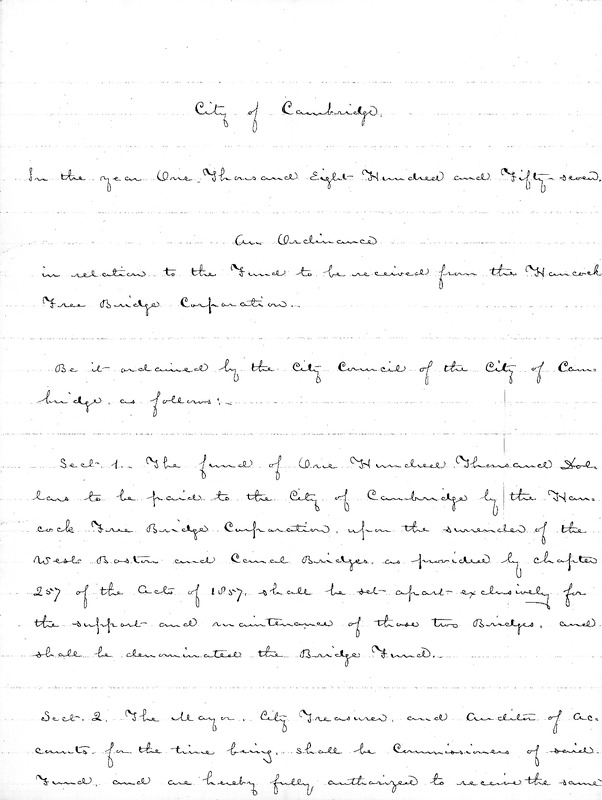 City of Cambridge.
In the year One Thousand Eight Hundred and Fifty-seven.
An Ordinance
in relation to the Fund to be received from the Hancock
Free Bridge Corporation.
Be it ordained by the City Council of the City of Cam-
bridge, as follows:-
Sect. 1. The fund of One Hundred Thousand Dol-
lars to be paid to the City of Cambridge by the Han-
cock Free Bridge Corporation, upon the surrender of the
West Boston and Canal Bridges, as provided by chapter
257 of the Acts of 1857, shall be set apart exclusively for
the support and maintenance of those two Bridges, and
shall be denominated the Bridge Fund.
Sect. 2. The Mayor, City Treasurer, and Auditor of Ac-
counts, for the time being, shall be Commissioners of said
Fund, and are hereby fully authorized to receive the same